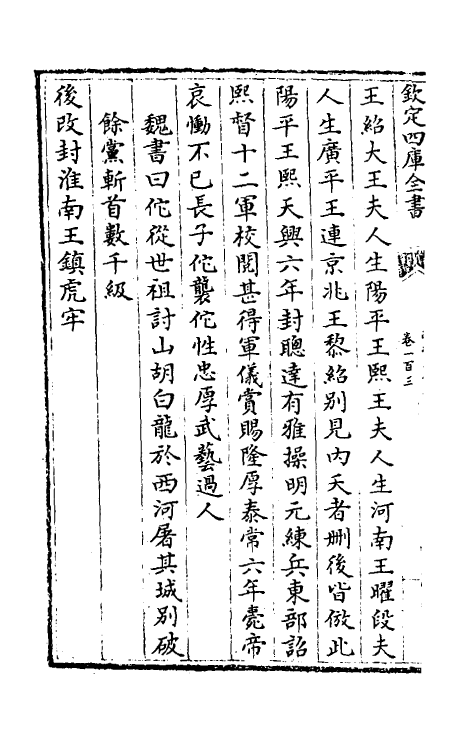 欽定四庫全書
卷一百三
王紹大王夫人生陽平王熙王夫人生河南王曜段夫
人生廣平王連京兆王黎紹別見內夭者刪後皆倣此
陽平王熙天興六年封聰達有雅操明元練兵東部詔
熙督十二軍校閱甚得軍儀賞賜隆厚泰常六年薨帝
哀慟不已長子佗襲佗性忠厚武藝過人
魏書曰佗從世祖討山胡白龍於西河屠其城別破
餘黨斬首數千級
後改封淮南王鎮虎牢